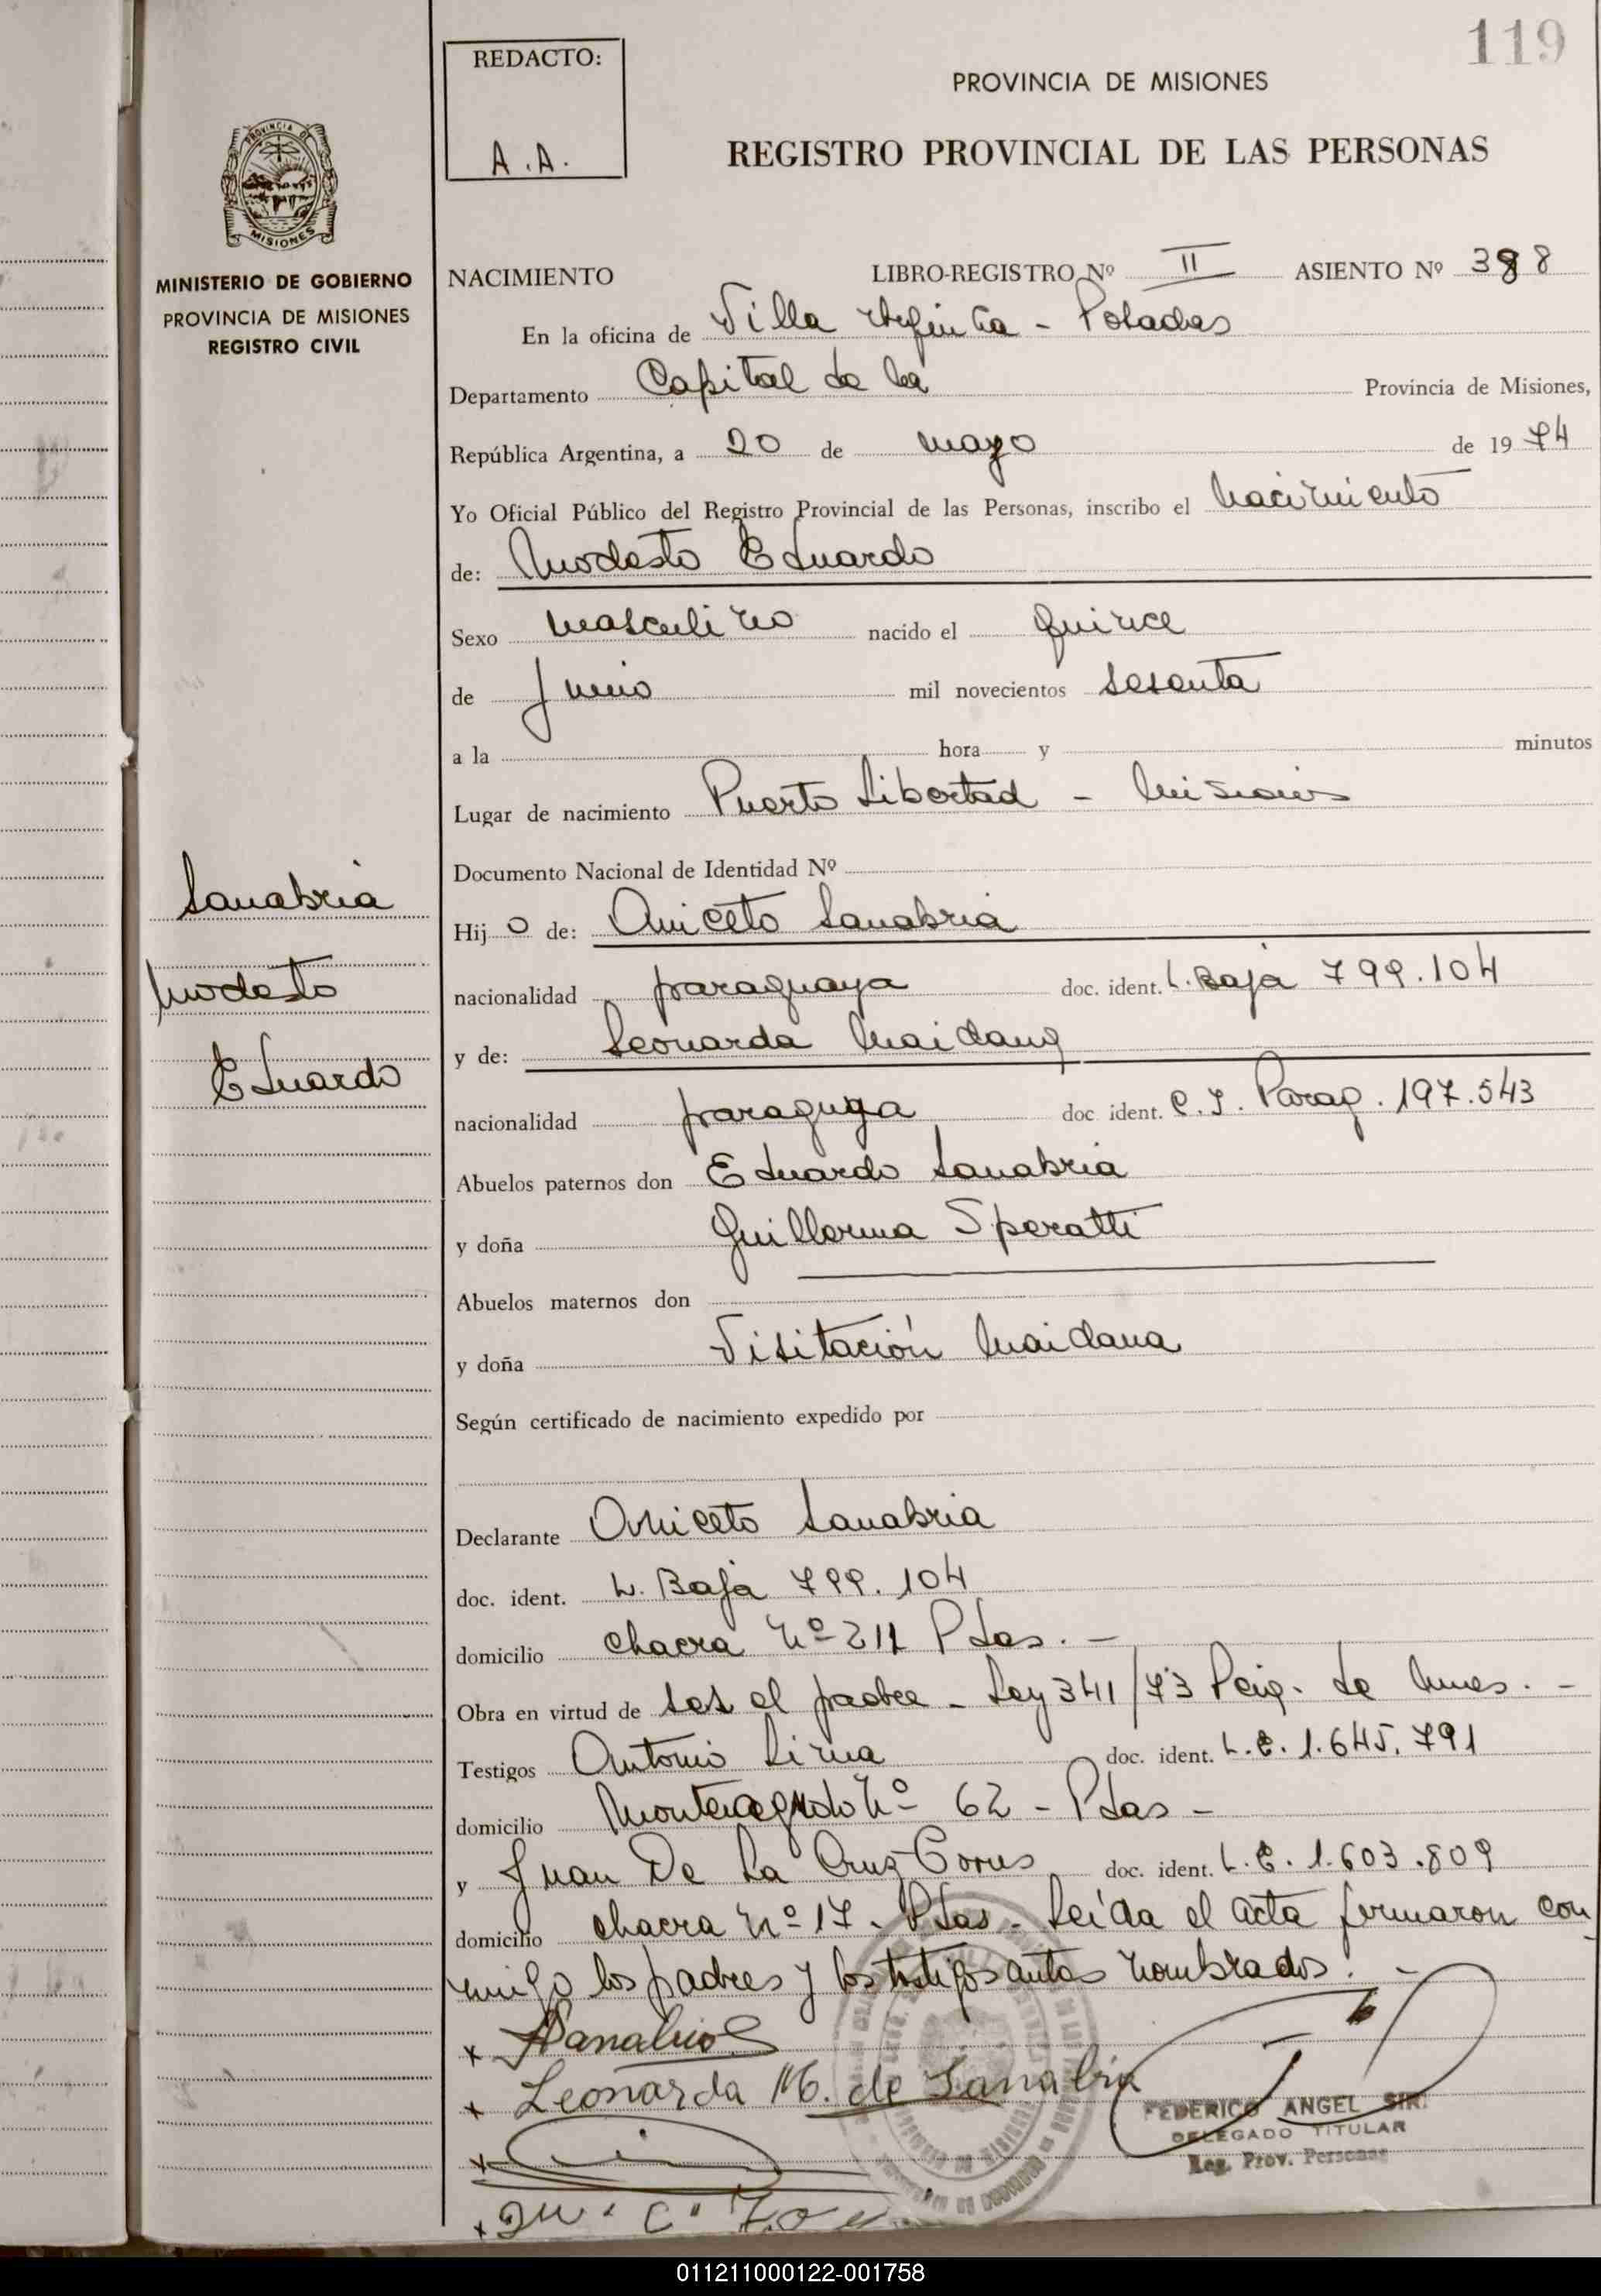 119
REDACTO:
A.A.
PROVINCIA DE MISIONES
REGISTRO PROVINCIAL DE LAS PERSONAS
PROVINCIA DE
MISIONES
MINISTERIO DE GOBIERNO
PROVINCIA DE MISIONES
REGISTRO CIVIL
NACIMIENTO LIBRO-REGISTRO Nº II ASIENTO Nº 388
En la oficina de Villa - Posadas
Departamento Capital de la Provincia de Misiones,
República Argentina, a 20 de mayo de 1974
Yo Oficial Público del Registro Provincial de las Personas, inscribo el Nacimiento
de: Modesto Eduardo
Sexo masculino nacido el quince
de Junio mil novecientos sesenta
a la hora y minutos
Lugar de nacimiento Puerto Libertad - Misiones
Documento Nacional de Identidad Nº
Sanabria
Modesto
Eduardo
Hijo de: Aniceto Sanabria
nacionalidad paraguaya doc. ident. L. Baja 799.104
y de: Leonarda Maidana
nacionalidad paraguya doc ident. C.I. Parag. 197.543
Abuelos paternos don Eduardo Sanabria
y doña Guillerma Speratti
Abuelos maternos don
y doña Visitación Maidana
Según certificado de nacimiento expedido por
Declarante Aniceto Sanabria
doc. ident. L. Baja 799.104
domicilio chacra Nº 211 Pdas. -
Obra en virtud de ser el padre - Ley 341/73 de -
Testigos Antonio doc. ident. L.E. 1.645.791
domicilio Monteagudo Nº 62 - Pdas -
y Juan De La Cruz doc. ident. L.E. 1.603.809
domicilio chacra Nº 17 - Pdas - Leída el acta firmaron con
migo los padres y los testigos antes nombrados. -
x Sanabria
x Leonarda M. de Sanabria
x
x
FEDERICO ANGEL
DELEGADO TITULAR
Reg. Prov. Personas
011211000122-001758